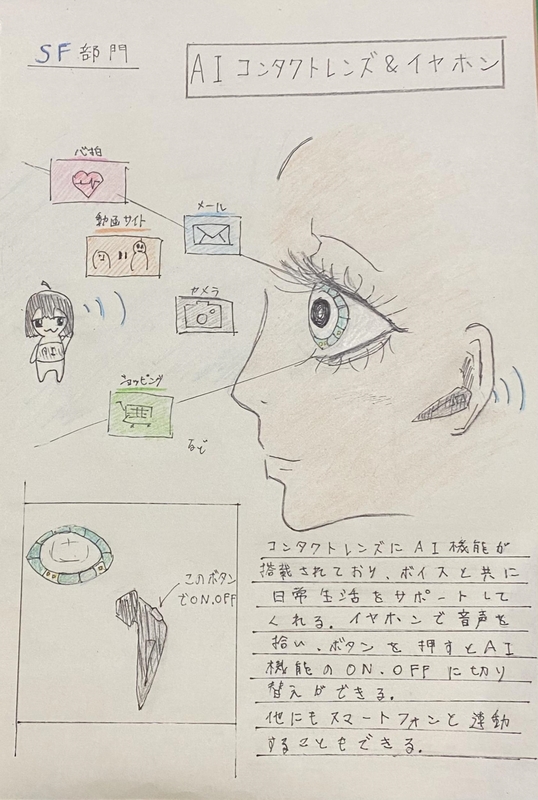 SF部門
AIコンタクトレンズ&イヤホン
心拍
動画サイト
メール
カメラ
ショッピング
など
このボタン
でON.OFF
コンタクトレンズにAI機能が
搭載されており、ボイスと共に
日常生活をサポートして
くれる。イヤホンで音声を
拾い、ボタンを押すとAI
機能のON.OFFに切り
替えができる。
他にもスマートフォンと連動
することもできる。